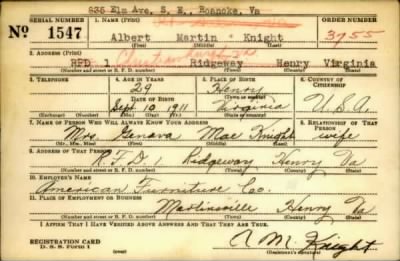 635 Elm Ave. S. E., Roanoke, Va
SERIAL NUMBER 1. NAME (Print) ORDER NUMBER
No 1547 Albert Martin Knight 3755
(First) (Middle) (Last)
2. ADDRESS (Print)
RFD 1 Ridgeway Henry Virginia
(Number and street or R. F. D. number) (Town) (County) (State)
3. TELEPHONE 4. AGE IN YEARS 5. PLACE OF BIRTH 6. COUNTRY OF CITIZENSHIP
29 Henry
DATE OF BIRTH (Town or county)
Sept 10 1911 Virginia U.S.A.
(Exchange) (Number) (Mo.) (Day) (Yr.) (State or country)
7. NAME OF PERSON WHO WILL ALWAYS KNOW YOUR ADDRESS 8. RELATIONSHIP OF THAT PERSON
Mrs. Geneva Mae Knight wife
(Mr., Mrs., Miss) (First) (Middle) (Last)
9. ADDRESS OF THAT PERSON
R.F.D. 1 Ridgeway Henry Va
(Number and street or R. F. D. number) (Town) (County) (State)
10. EMPLOYER'S NAME
American Furniture Co.
11. PLACE OF EMPLOYMENT OR BUSINESS
Martinsville Henry Va
(Number and street or R. F. D. number) (Town) (County) (State)
I AFFIRM THAT I HAVE VERIFIED ABOVE ANSWERS AND THAT THEY ARE TRUE.
REGISTRATION CARD
D. S. S. Form 1 A M. Knight
(Registrant's signature)